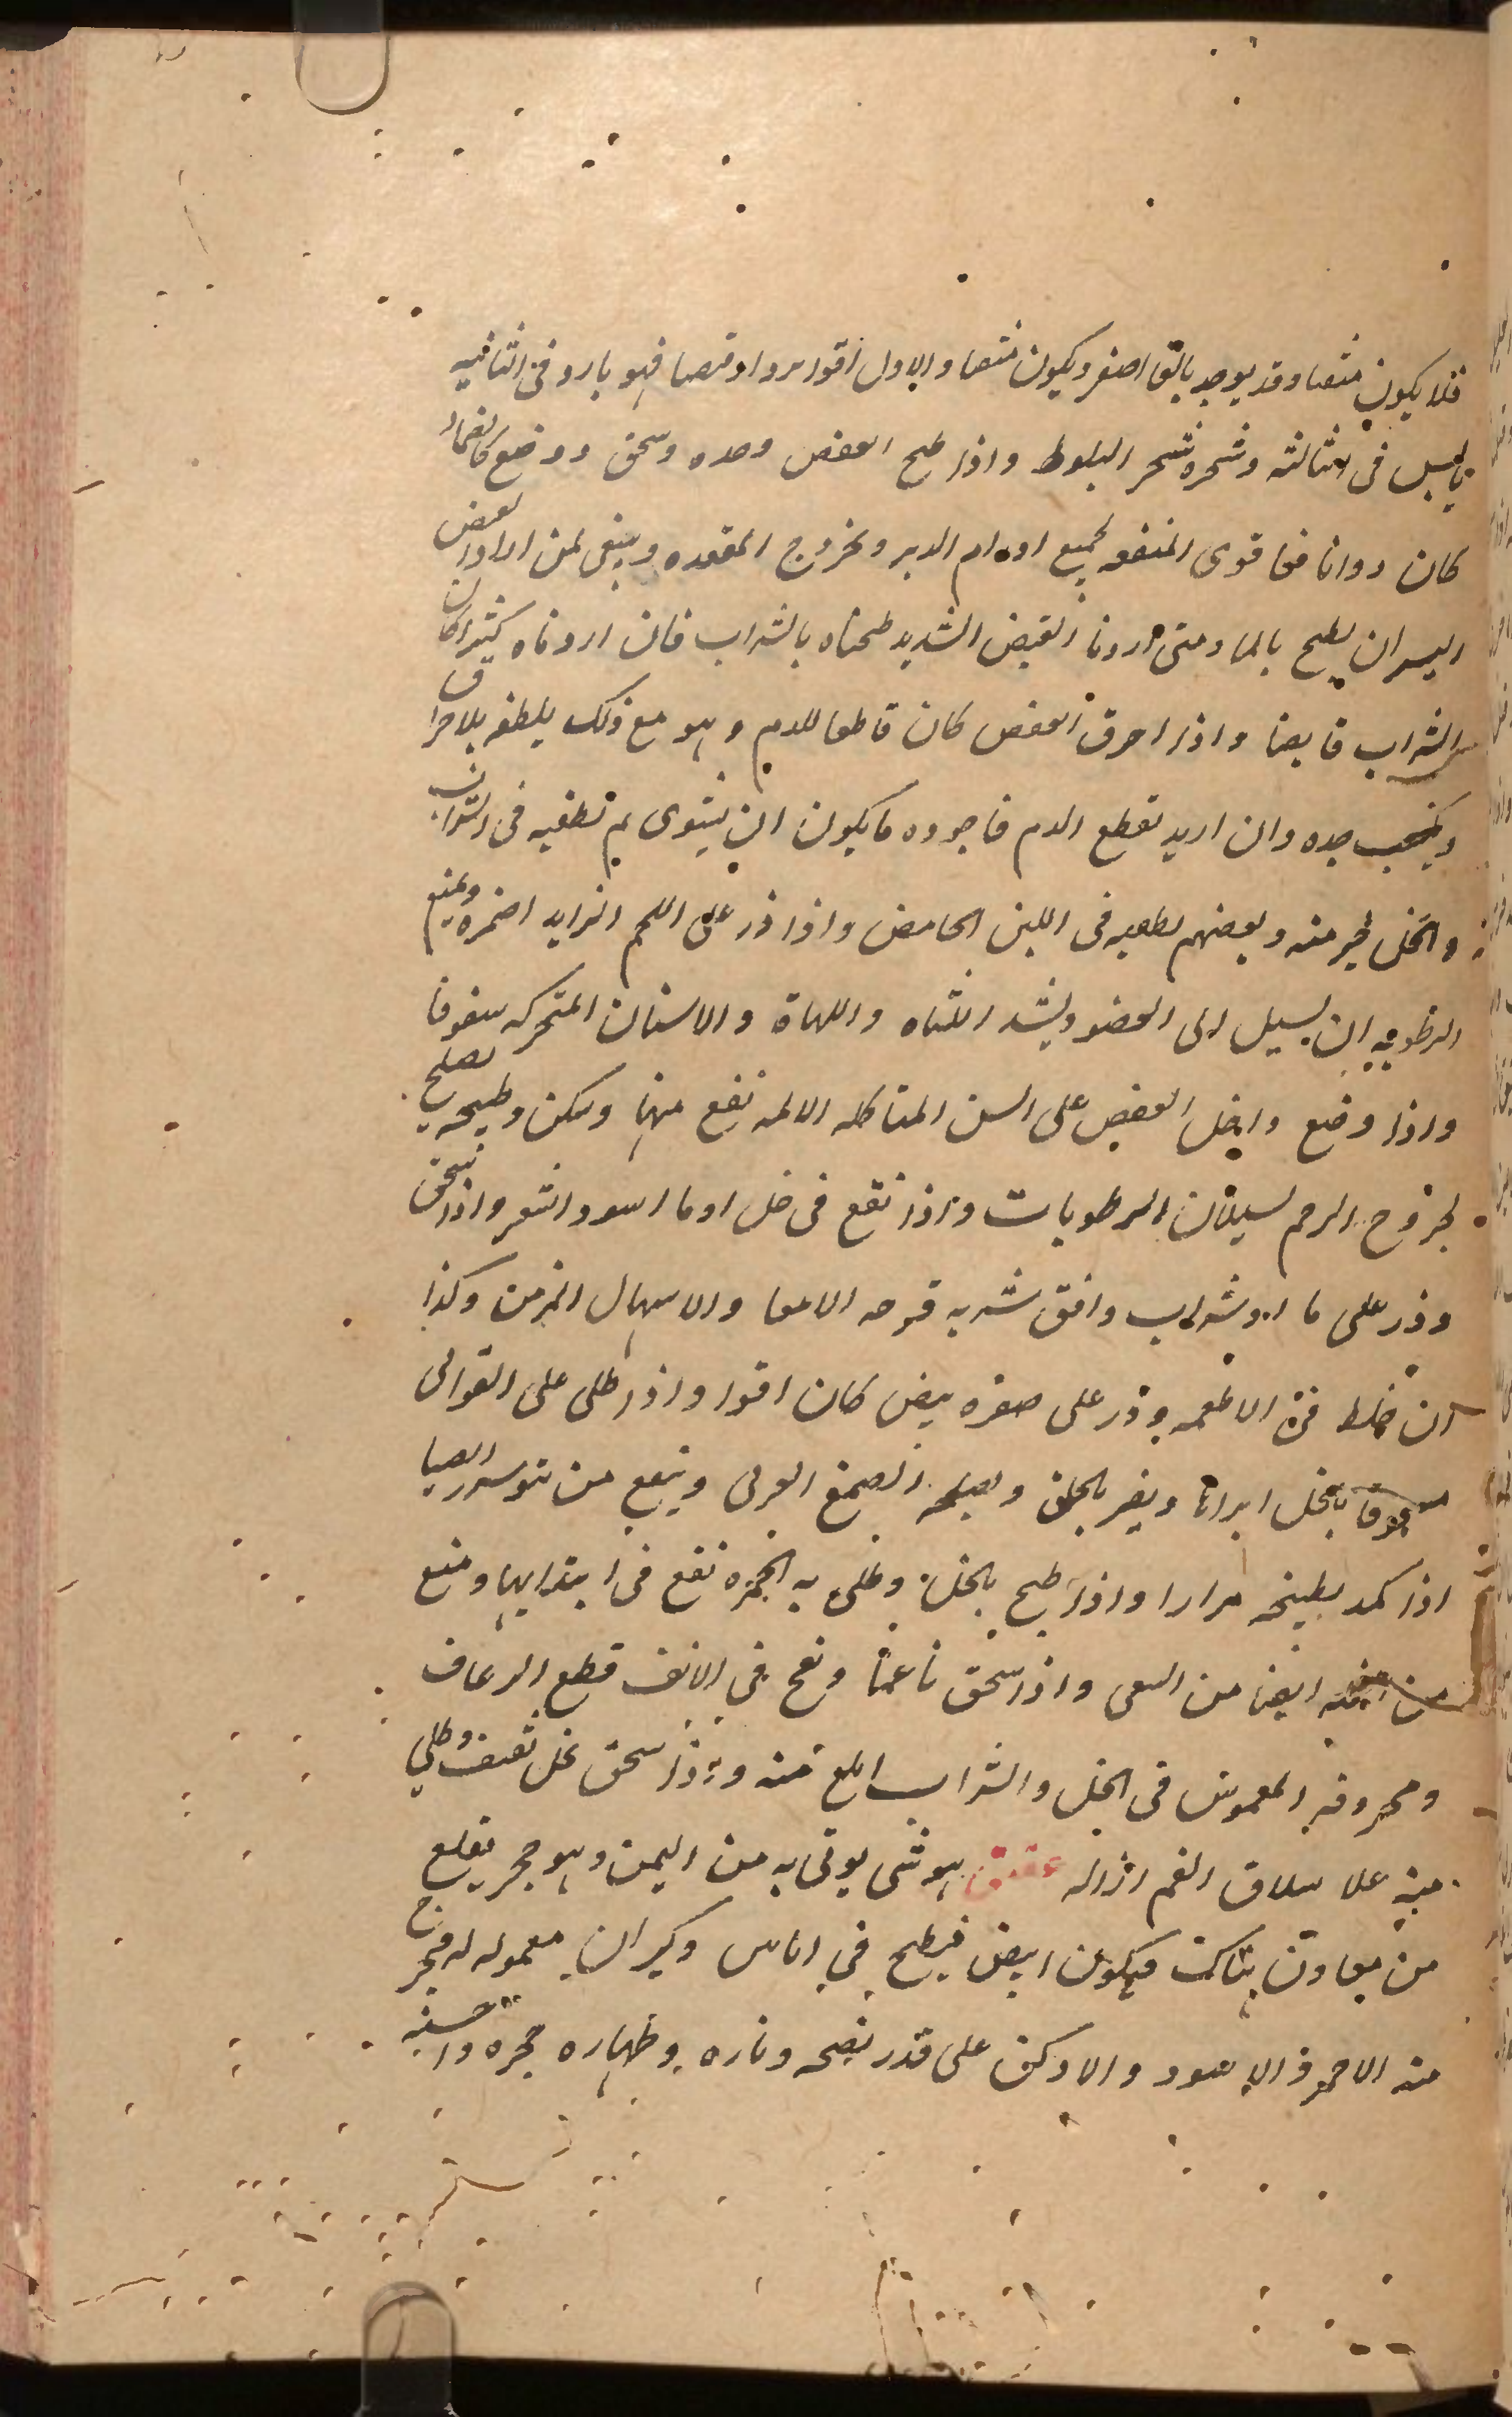 فلا يكون مثقبا وقد يوجد بالقا اصفر ويكون مثقبا والاول اقوا بردا وقبضا فهو بارد فى الثانيه
يابس فى الثالثه وشجره شجر البلوط واذا طبخ العفص وحده وسحق ووضع كالضماد
كان دوانا فعا قوى المنفعه لجميع اورام الدبر ولخروج المقعده وينبغى لمن اراد القبض
اليسير ان يطبخ بالما ومتى اردنا القبض الشديد طبخناه بالشراب فان اردناه كثيرا كان
الشراب قابضا واذا احرق العفص كان قاطعا للدم وهو مع ذلك يلطف بلاحراق
جده وان اريد تقطع الدم فاجوده ما يكون ان يشوى ثم تطفيه فى الشراب
والخل خير منه وبعضهم يطفيه فى اللبن الحامض واذا ذر على اللحم الزايد اضمره ويمنع
الرطوبه ان يسيل الى العضو ويشد اللثاه واللهاة والاسنان المتحركه سفوفا
واذا وضع داخل العفص على السن المتاكله الالمه نفع منها وسكن وطبيخه يصلح
لخروج الرحم لسيلان الرطوبات واذا نقع فى خل او ما اسود الشعر واذا سحق
وذر على ما او شراب وافق شربه قرحه الامعا والاسهال المزمن وكذا
ان خلط فى الاطعمه وذر على صفره بيض كان اقوا واذا طلى على القوابى
بالخل ابراتا ويضر بالحلق ويصلحه الصمغ العربى وينفع من
اذا كمد بطبيخه مرارا واذا طبخ بالخل وطلى به الجمره نفع فى ابتدايها ومنع
ايضا من السعى واذا سحق ناعما ونفخ فى الانف قطع الرعاف
ومحروقه المغموس فى الخل والشراب ابلغ منه واذا سحق بخل ثقيف وطلى
منه علا سلاق الفم ازاله عقيق هو شى يوتى به من اليمن وهو حجر يقلع
من معادن هناك فيكون ابيض فيطبخ فى اناس وكيران معموله له فيخرج
منه الاحمر والاسود والادكن على قدر نضجه وناره وطهاره حجره واحسنه